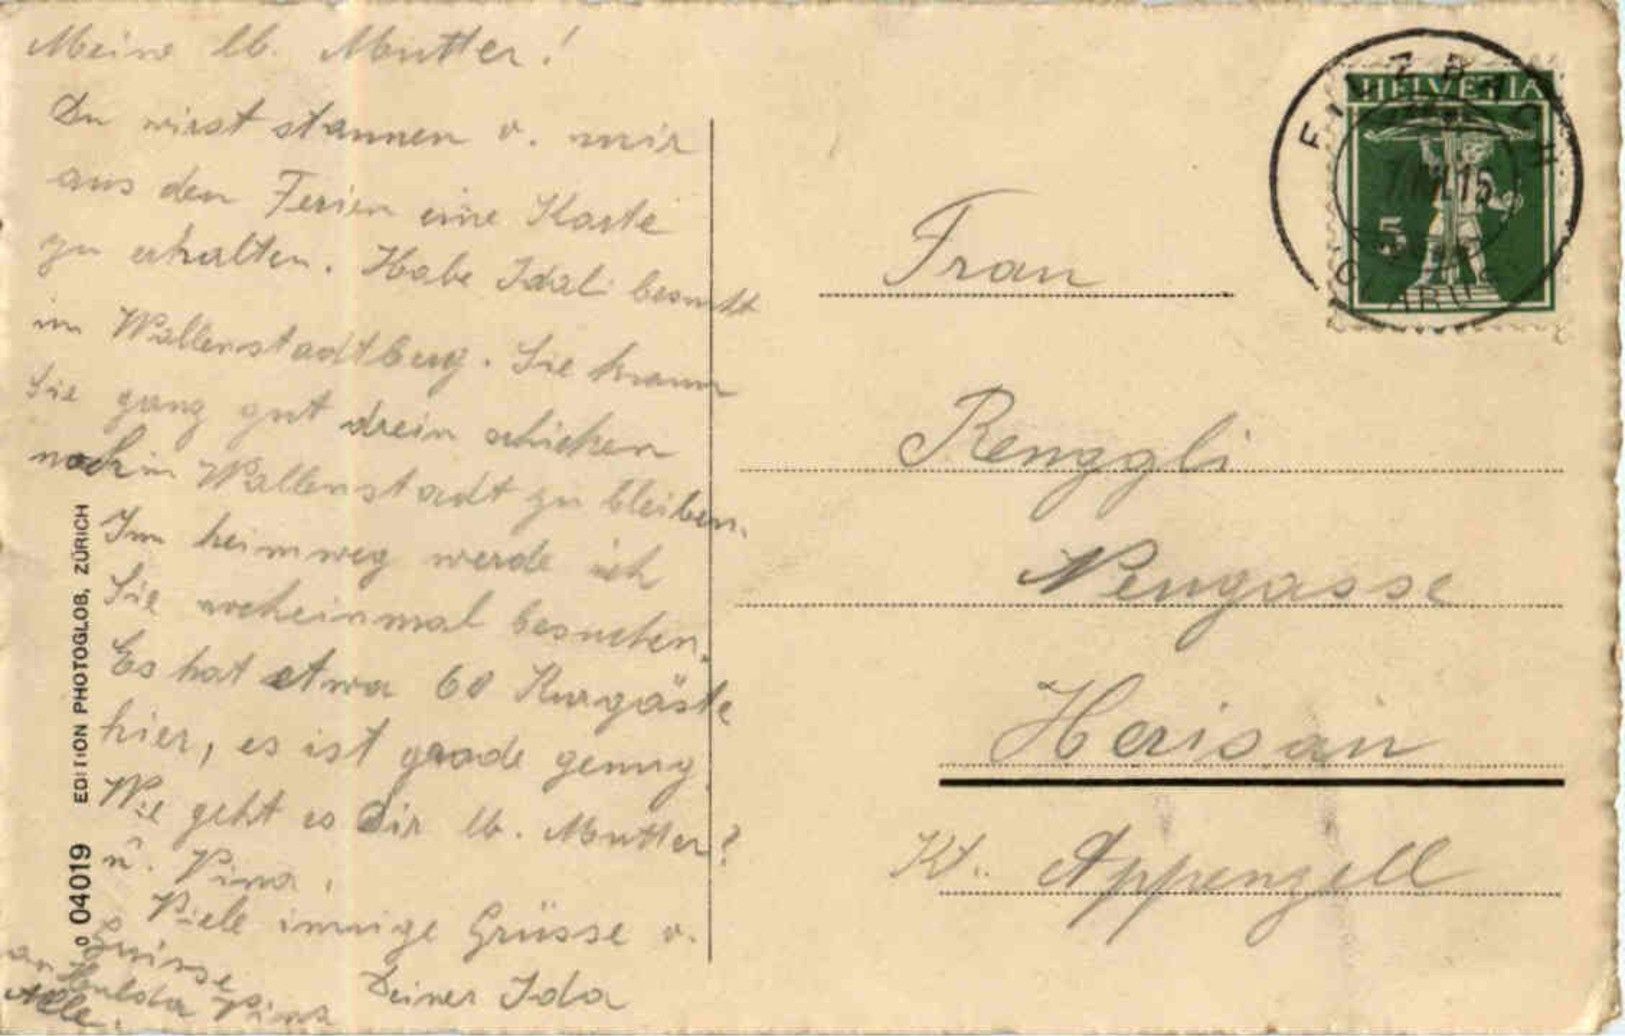 Meine lb. Mutter!
Du wirst staunen v. mir
aus den Ferien eine Karte
zu erhalten. Habe Idali besucht
im Wallenstadtberg. Sie kann
Sie ganz gut drein schicken
noch in Wallenstadt zu bleiben.
Im heimweg werde ich
Sie nocheinmal besuchen.
Es hat etwa 60 Kurgäste
hier, es ist grade genug
Wie geht es Dir lb. Mutter?
u. Pina.
Viele innige Grüsse v.
Deiner Ida
Grüsse
an Hulda Pina
Alle.
EDITION PHOTOGLOB, ZÜRICH
04019
HELVETIA
5
Frau
Renggli
Neugasse
Herisau
Kt. Appenzell